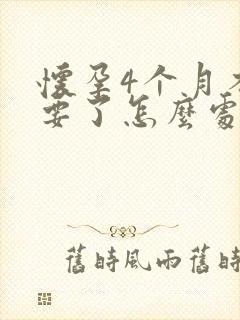 懷孕4个月
要了怎麼處
舊時風雨舊時